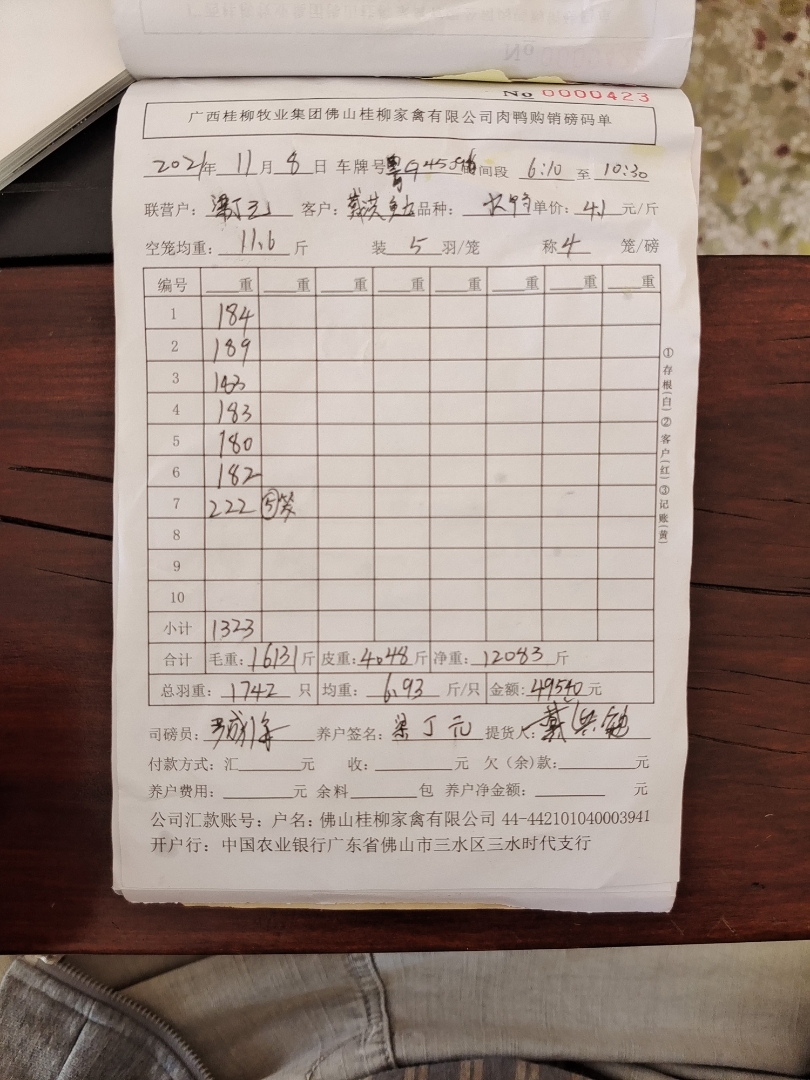 No 0000423
广西桂柳牧业集团佛山桂柳家禽有限公司肉鸭购销磅码单
2021年 11月 8日 车牌号 粤G 时间段 6:10 至 10:30
联营户: 梁丁元 客户: 戴洪 品种: 单价: 4.1 元/斤
空笼均重: 11.6 斤 装 5 羽/笼 称 4 笼/磅
编号 重 重 重 重 重 重 重 重
1 184
2 189
3
4 183
5 180
6 182
7 222 ⑤笼
8
9
10
小计 1323
合计 毛重: 16131 斤 皮重: 4048 斤 净重: 12083 斤
总羽重: 1742 只 均重: 6.93 斤/只 金额: 49540 元
司磅员: 养户签名: 梁丁元 提货人: 戴洪
付款方式: 汇 元 收: 元 欠(余)款: 元
养户费用: 元 余料 包 养户净金额: 元
公司汇款账号: 户名: 佛山桂柳家禽有限公司 44-442101040003941
开户行: 中国农业银行广东省佛山市三水区三水时代支行
①存根(白)②客户(红)③记账(黄)